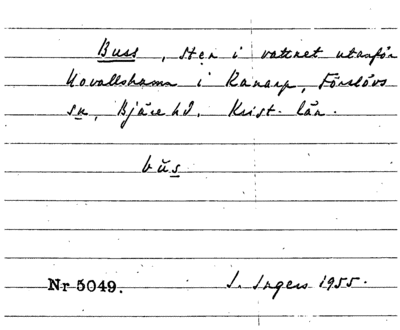 Buss, sten i vattnet utanför
Kovallshamn i Ranarp, Förslövs
sn, Bjäre hd. Krist. län.
bŭs
Nr 5049. I. Ingers 1955.